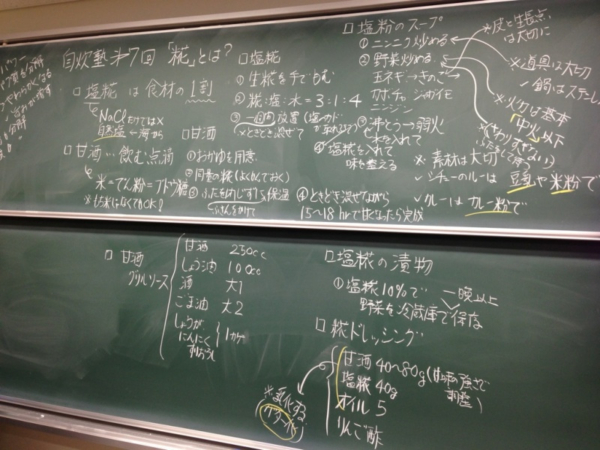 自炊塾#7回「糀」とは?
□塩糀は食材の1割
NaClだけでは×
自然塩←海から
□甘酒…飲む点滴
米→でん粉=ブドウ糖
□塩糀
①生糀を手でもむ
②糀:塩:水=3:1:4
※ときどき混ぜて
□甘酒
①おかゆを用意
②同量の糀(ほぐしておく)
③ふたをあけして保温
④ときどき混ぜながら
15〜18hrで甘くなったら完成
□塩粉のスープ
①ニンニク炒める
②野菜炒める
玉ネギ→きのこ
カボチャ ジャガイモ
ニンジン
③沸とう→弱火
④塩糀を入れて
味を整える
※皮と生長点
は大切に
※道具は大切
✓鍋はステンレ
※火力は基本
中火以下
※素材は大切
✓シチューのルーは豆乳や米粉で
✓ルーはカレー粉で
□甘酒
グリルソース
甘酒 250cc
しょう油 100cc
酒 大1
ごま油 大2
しょうが
にんにく
1かけ
□塩糀の漬物
①塩糀10%で 一晩以上
野菜を冷蔵庫で保存
□糀ドレッシング
甘酒 40〜80g(甘味の強さで
調整)
塩糀 40g
オイル 5
りんご酢
※乳化する